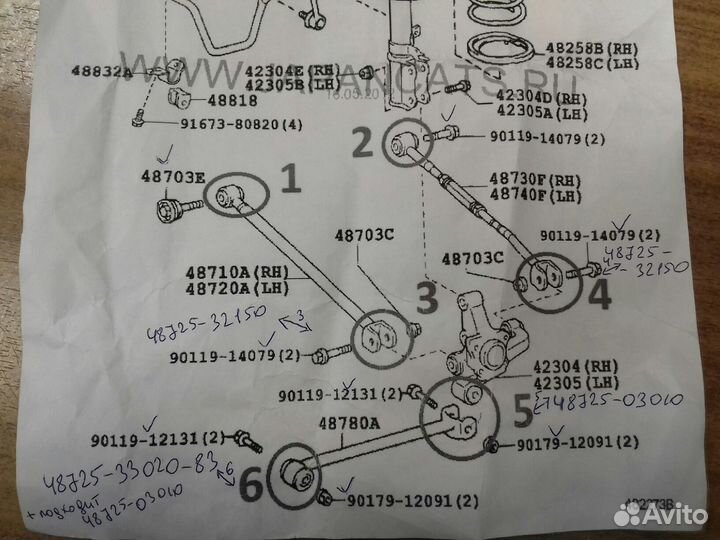 48258B(RH)
48258C(LH)
48832A
42304E(RH)
42305B(LH)
WWW.JAPANCATS.RU
16.05.2012
48818
91673-80820(4)
42304D(RH)
42305A(LH)
2
90119-14079(2)
48703E
1
48730F(RH)
48740F(LH)
48703C
48703C
90119-14079(2)
48725-
-32150
48710A(RH)
48720A(LH)
3
4
48725-32150
3
90119-14079(2)
42304(RH)
42305(LH)
90119-12131(2)
5
48725-03010
48780A
90119-12131(2)
90179-12091(2)
48725-33020-83
6
6
+ подходит
48725-03010
90179-12091(2)
482273B
Avito